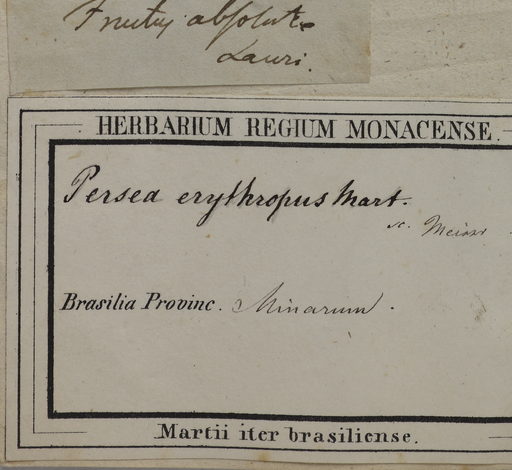 Fructus absolute
Lauri.
HERBARIUM REGIUM MONACENSE.
Persea erythropus Mart.
sc. Meissn
Brasilia Provinc. Minarum.
Martii iter brasiliense.